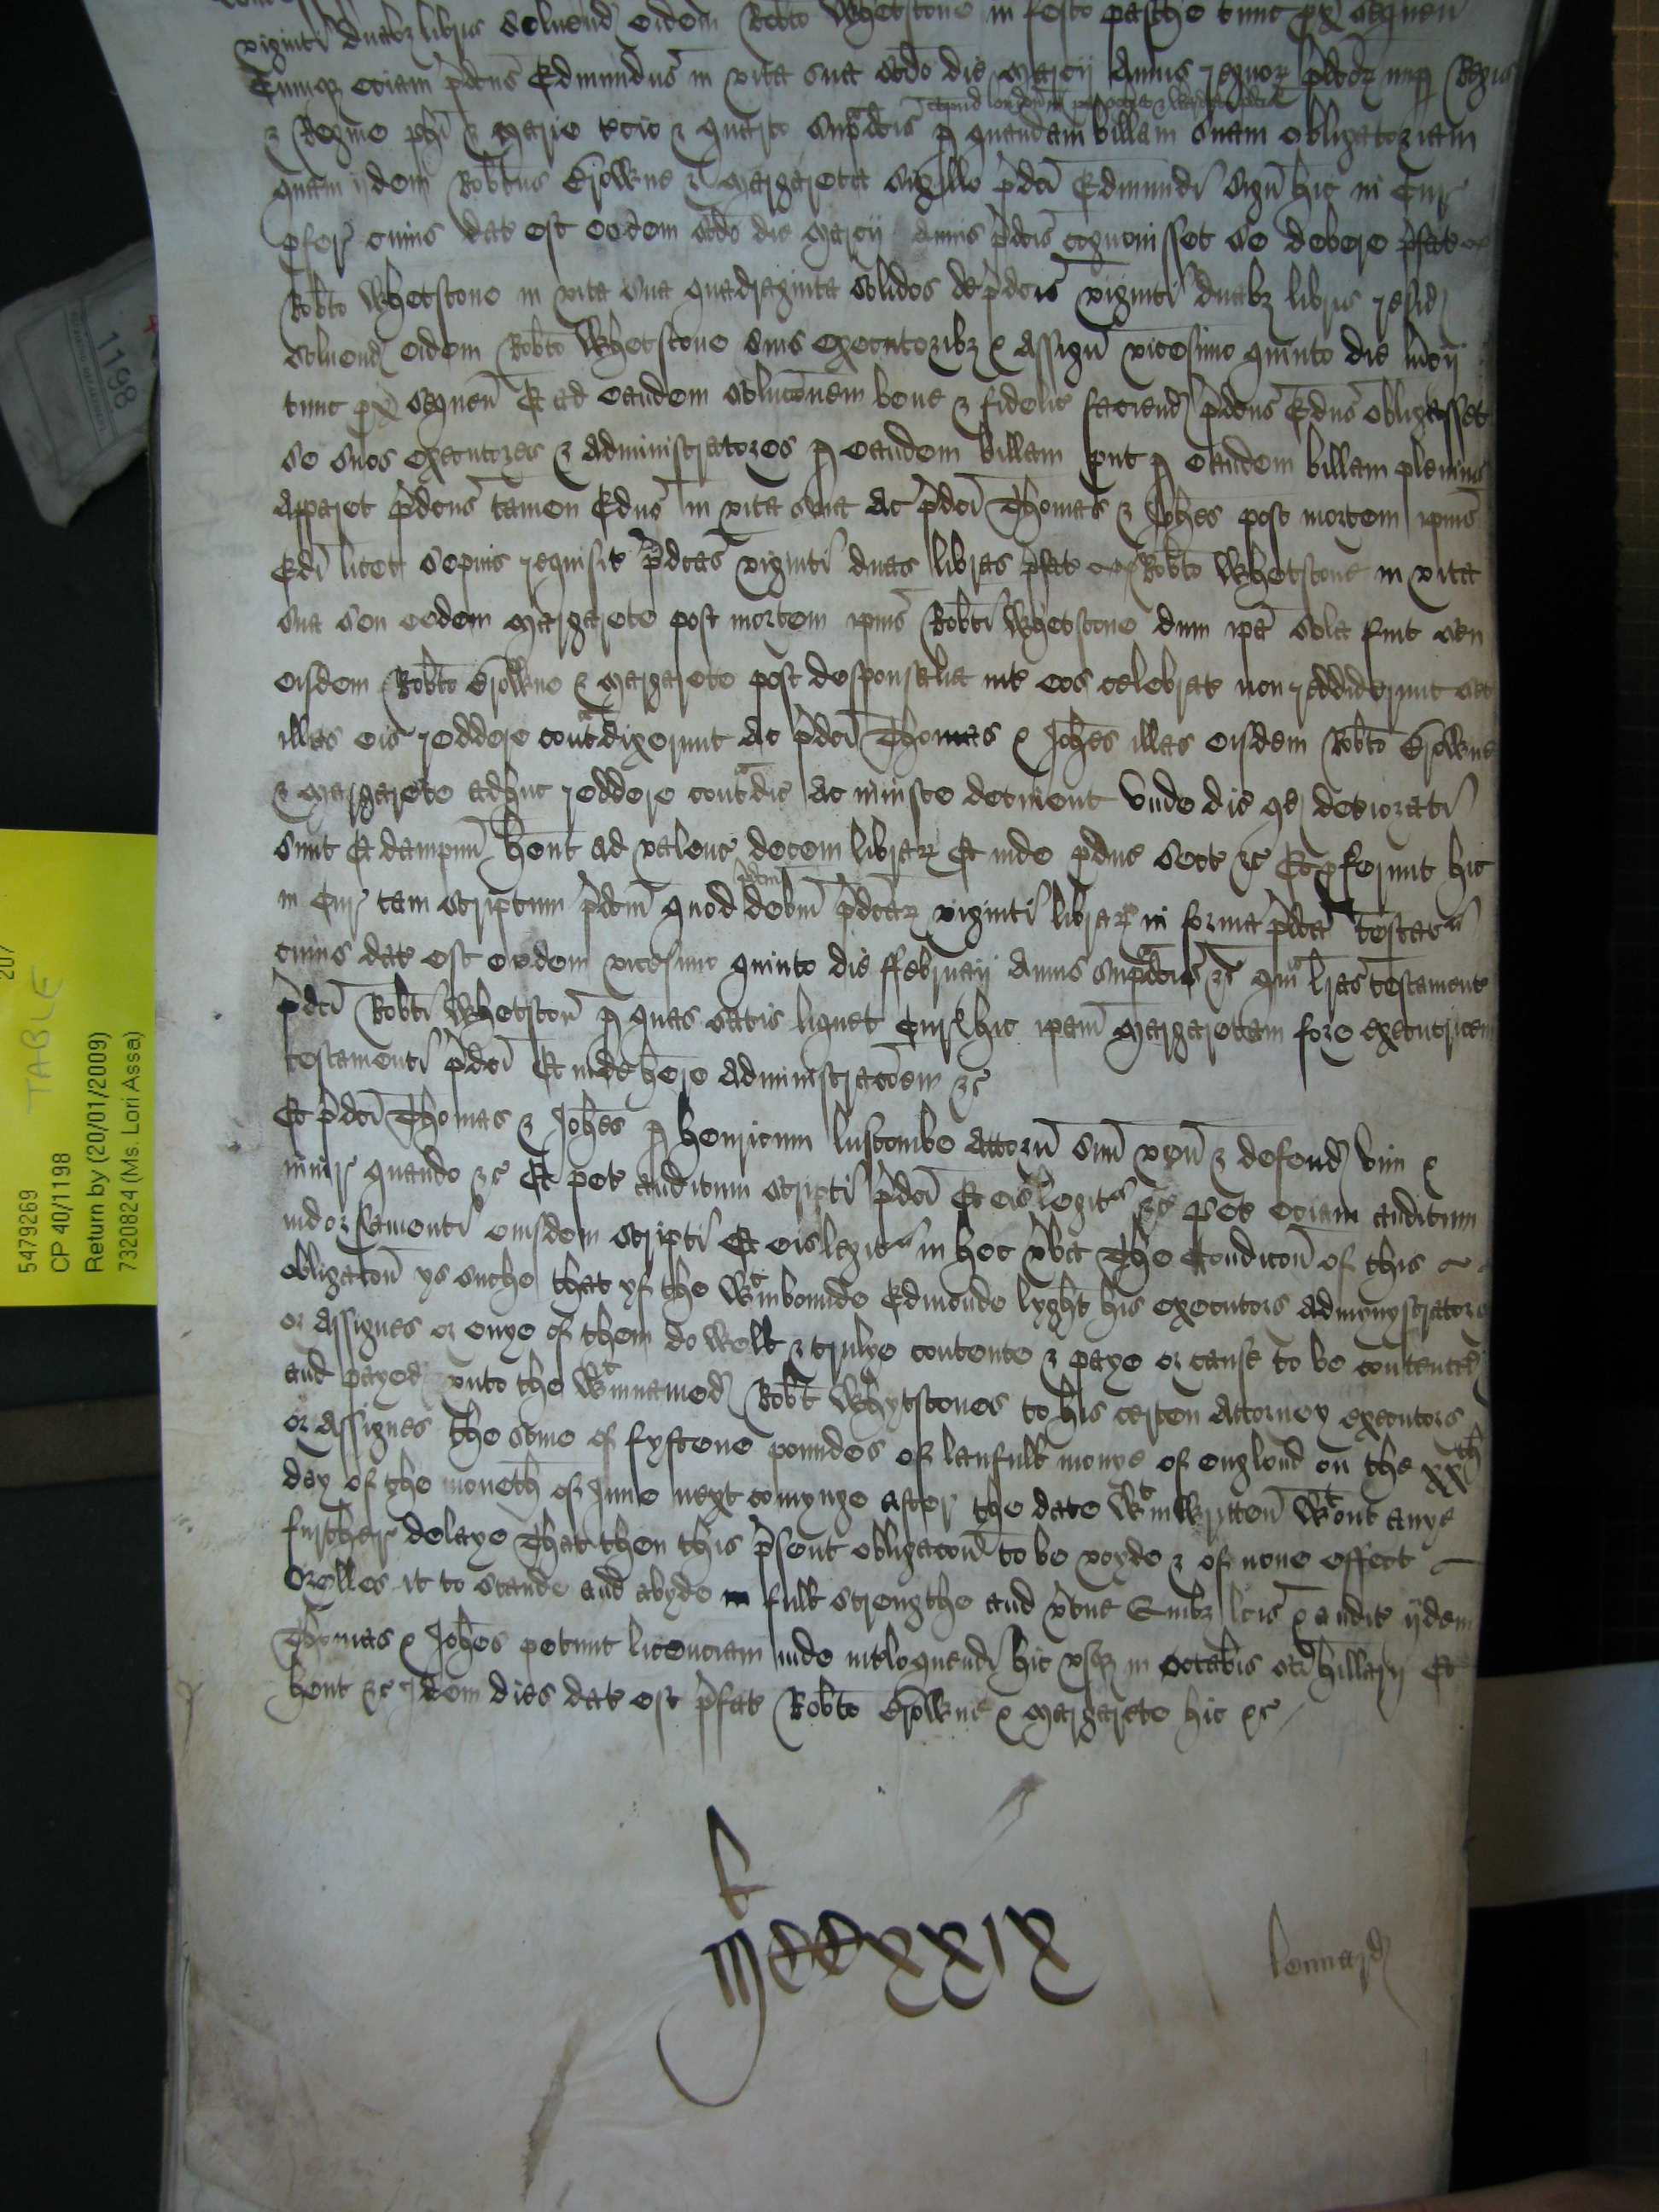 viginti duabz libris solvend eidem Robto Whetstone in festo pasche tunc px sequen
Cumqz eciam pdcus Edmundus in vita sua scdo die Marcij Annis regnoz pdcoz nup Regis
apud london in pochia & Warda pdcis
& Regine phi & Marie tcio & quarto supdcis p quandam billam suam obligatoriam
quam ijdem Robtus Browne & Margareta sigillo pdci Edmundi sign hic in Cur
pfer cuius dat est eodem scdo die Marcij Annis pdcis cognovisset se debere pfat
Robto Whetstone in vita sua quadraginta solidos de pdcis viginti duabz libris resid
solvend eidem Robto Whetstone suis executoribz & Assign vicesimo quinto die Marcij
tunc px sequen Et ad eandem soluconem bene & fidelit faciend pdcus Edus obligasset
se suos executores & Administratores p eandem billam put p eandem billam plenius
Apparet pdcus tamen Edus in vita sua Ac pdci Thomas & Johes post mortem ipius
Edi licet sepius requisit pdcas viginti duas libras pfat Robto Whetstone in vita
sua seu eidem Margarete post mortem ipius Robti Whetstone dum ipa sola fuit seu
eisdem Robto Browne & Margarete post desponsalia int eos celebrat non reddiderunt set
illas eis reddere contdixerunt Ac pdci Thomas & Johes illas eisdem Robto Browne
& Margarete adhuc reddere contdic Ac iniuste detinent Unde dic qd deteriorati
sunt Et dampnu hent ad valenc decem librar Et inde pduc sect &c Et pferunt hic
in Cur tam scriptum pdcm quod debm pdcm pdcar viginti librar in forma pdca testatr
cuius dat est eodem vicesimo quinto die ffebruarij Annis supdcis &c qm lras testament
pdci Robti Whetston p quas satis liquet Cur hic ipam Margaretam fore executricem
testamenti pdci Et inde here Administracoem &c
Et pdci Thomas & Johes p henricum luscombe Attorn suu ven & defend vim &
iniur quando &c Et pet auditum scripti pdci Et eis legitr &c pet eciam auditum
indorsamenti eiusdem scripti Et eis legitr in hec vba The Condicon of this
obligacon ys suche that yf the wtinbounde Edmonde lyght his executors Admynystrators
or Assignes or enye of them do well & trulye contente & paye or cause to be contented
and payed unto the wtinnamed Robt Whytstones to his certen Attorney executors
or Assignes the some of fyftene poundes of laufull monye of englond on the xxth
day of the moneth of June next comynge after the date wtinwritten wtout anye
further delaye That then this psent obligacon to be voyde & of none effect
Orelles it to stande and abyde full strengthe and vtue Quibz lcis & audit ijdem
Thomas & Johes petunt licenciam inde intloquendi hic usqz in octabis sci hillarij Et
hent &c Idem dies dat est pfat Robto Browne & Margarete hic &c
MCCXXIX
lennard
1198
207
TABLE
5479269
CP 40/1198
Return by (20/01/2009)
7320824 (Ms. Lori Assa)